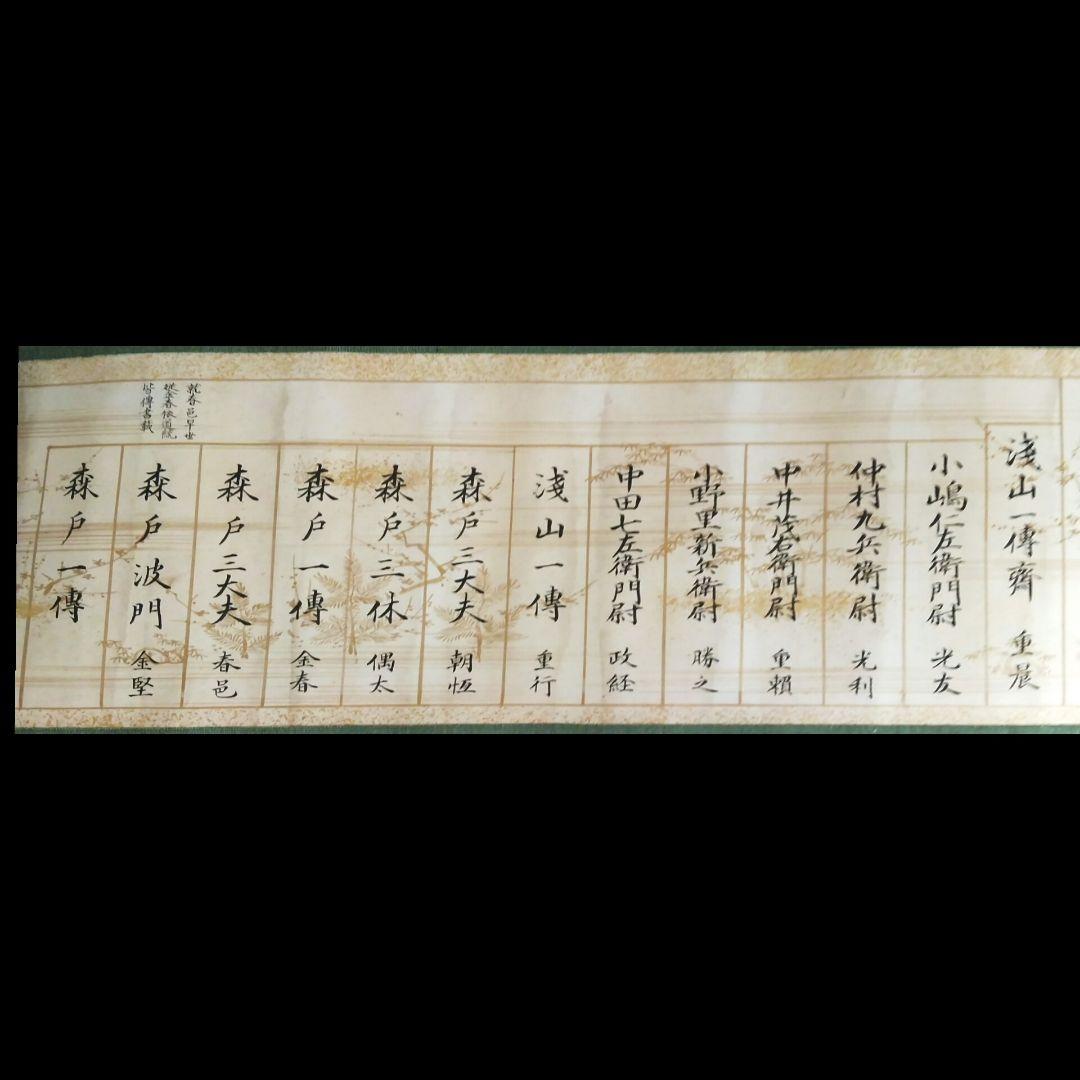 淺山一傳齊 重晨
小嶋仁左衛門尉 光友
仲村九兵衛尉 光利
中井茂右衛門尉 重頼
小野里新兵衛尉 勝之
中田七左衛門尉 政経
淺山一傳 重行
森戸三太夫 朝恆
森戸三休 偶太
森戸一傳 金春
就春邑早世
金春依道統
皆傳書載
森戸三太夫 春邑
森戸波門 金堅
森戸一傳